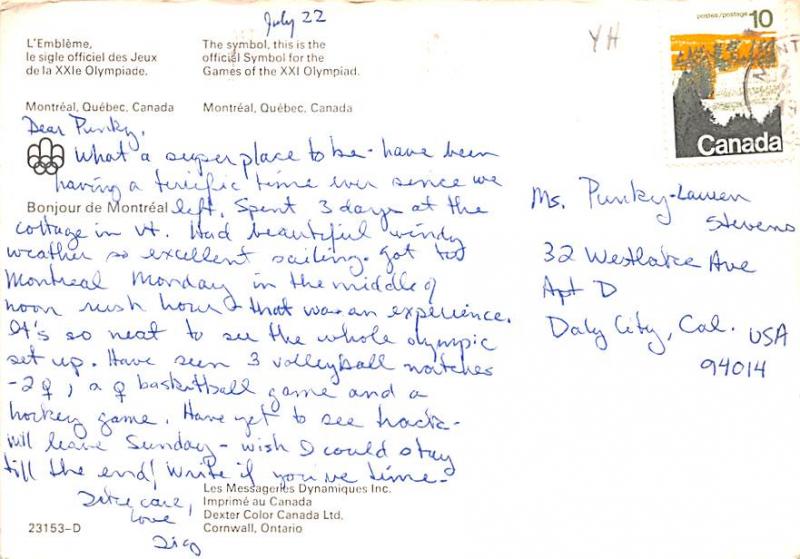 July 22
YH
L'Emblème,
le sigle officiel des Jeux
de la XXIe Olympiade.
Montréal, Québec, Canada
The symbol, this is the
official Symbol for the
Games of the XXI Olympiad.
Montréal, Québec, Canada
postes/postage 10
Canada
Dear Punky,
What a super place to be - have been
having a terrific time ever sence we
Bonjour de Montréal
left. Spent 3 days at the
cottage in Vt. Had beautiful windy
weather so excellent sailing. got to
Montreal Monday in the middle of
noon rush hour & that was an experience.
It's so neat to see the whole olympic
set up. Have seen 3 volleyball matches
- 2♀, a ♀ basketball game and a
hockey game. Have yet to see track -
will leave Sunday - wish I could stay
till the end! Write if you've time -
Take care,
love
Ms. Punky-Lauren
Stevens
32 Westlake Ave
Apt D
Daly City, Cal. USA
94014
Les Messageries Dynamiques Inc.
Imprimé au Canada
Dexter Color Canada Ltd.
Cornwall, Ontario
23153-D